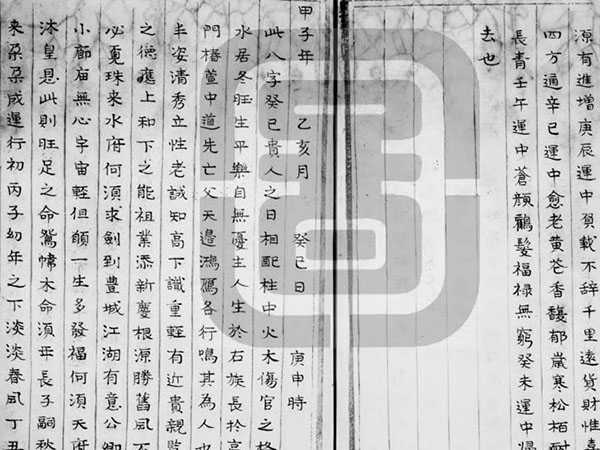 源有進增庚辰運中負載不辞千里遠貨財惟喜
四方通辛巳運中愈老黄芲香馥郁歲寒松栢耐
長青壬午運中蒼顔鶴髮福禄無窮癸未運中帰
去也
甲子年 乙亥月 癸巳日 庚申時
此八字癸巳貴人之日相配柱中火木傷官之格
水居冬旺生平樂自無憂主人生於右族長於高
門椿萱中道先亡父天邊鴻鴈各行鳴其為人也
丰姿清秀立性老誠知高下識重輕有近貴親
之德應上和下之能祖業添新慶根源勝舊風不
必覓珠来水府何須求劍到豊城江湖有意公卿
小廊庙無心宇宙輕但願一生多發福何須天府
沐皇恩此則旺足之命鴛幃木命須再長子嗣秋
来朶朶成運行初丙子幼年之下淡淡春風丁丑